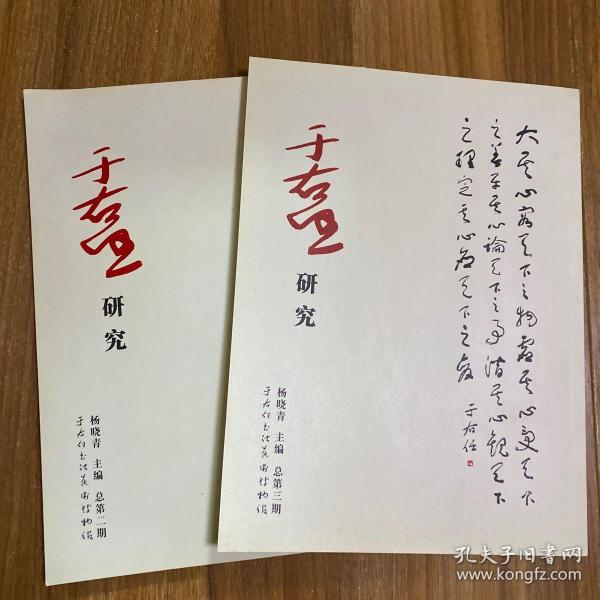 于右任
研究
杨晓青 主编 总第二期
于右任书法艺术博物馆
于右任
研究
杨晓青 主编 总第三期
于右任书法艺术博物馆
大其心容天下之物虚其心受天下
之善平其心论天下之事潜其心观天下
之理定其心应天下之变
于右任
孔夫子旧书网
www.kongfz.com